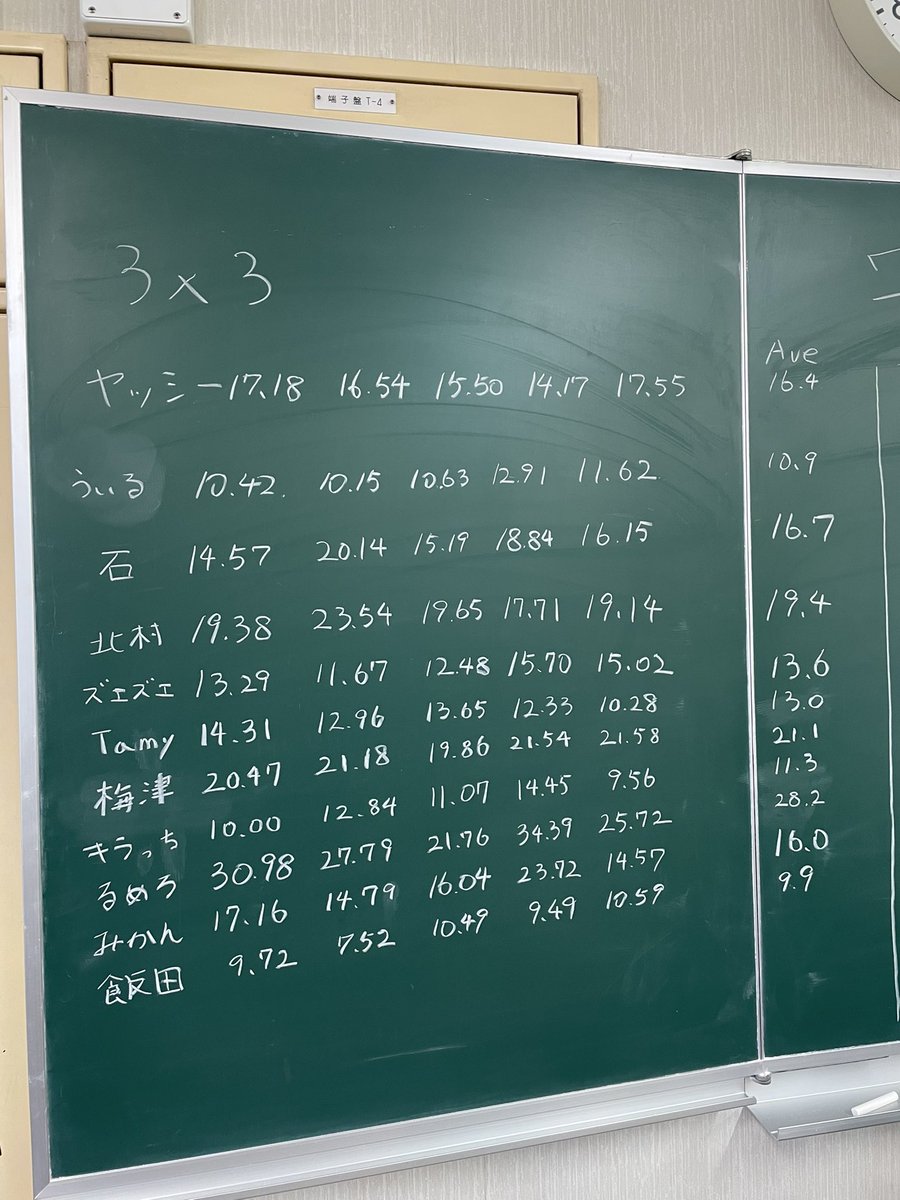 端子盤 T-4
3×3
Ave
ヤッシー 17.18 16.54 15.50 14.17 17.55 16.4
うぃる 10.42 10.15 10.63 12.91 11.62 10.9
石 14.57 20.14 15.19 18.84 16.15 16.7
北村 19.38 23.54 19.65 17.71 19.14 19.4
ズェズェ 13.29 11.67 12.48 15.70 15.02 13.6
Tamy 14.31 12.96 13.65 12.33 10.28 13.0
梅津 20.47 21.18 19.86 21.54 21.58 21.1
キラっち 10.00 12.84 11.07 14.45 9.56 11.3
るめろ 30.98 27.79 21.76 34.39 25.72 28.2
みかん 17.16 14.79 16.04 23.72 14.57 16.0
飯田 9.72 7.52 10.49 9.49 10.59 9.9